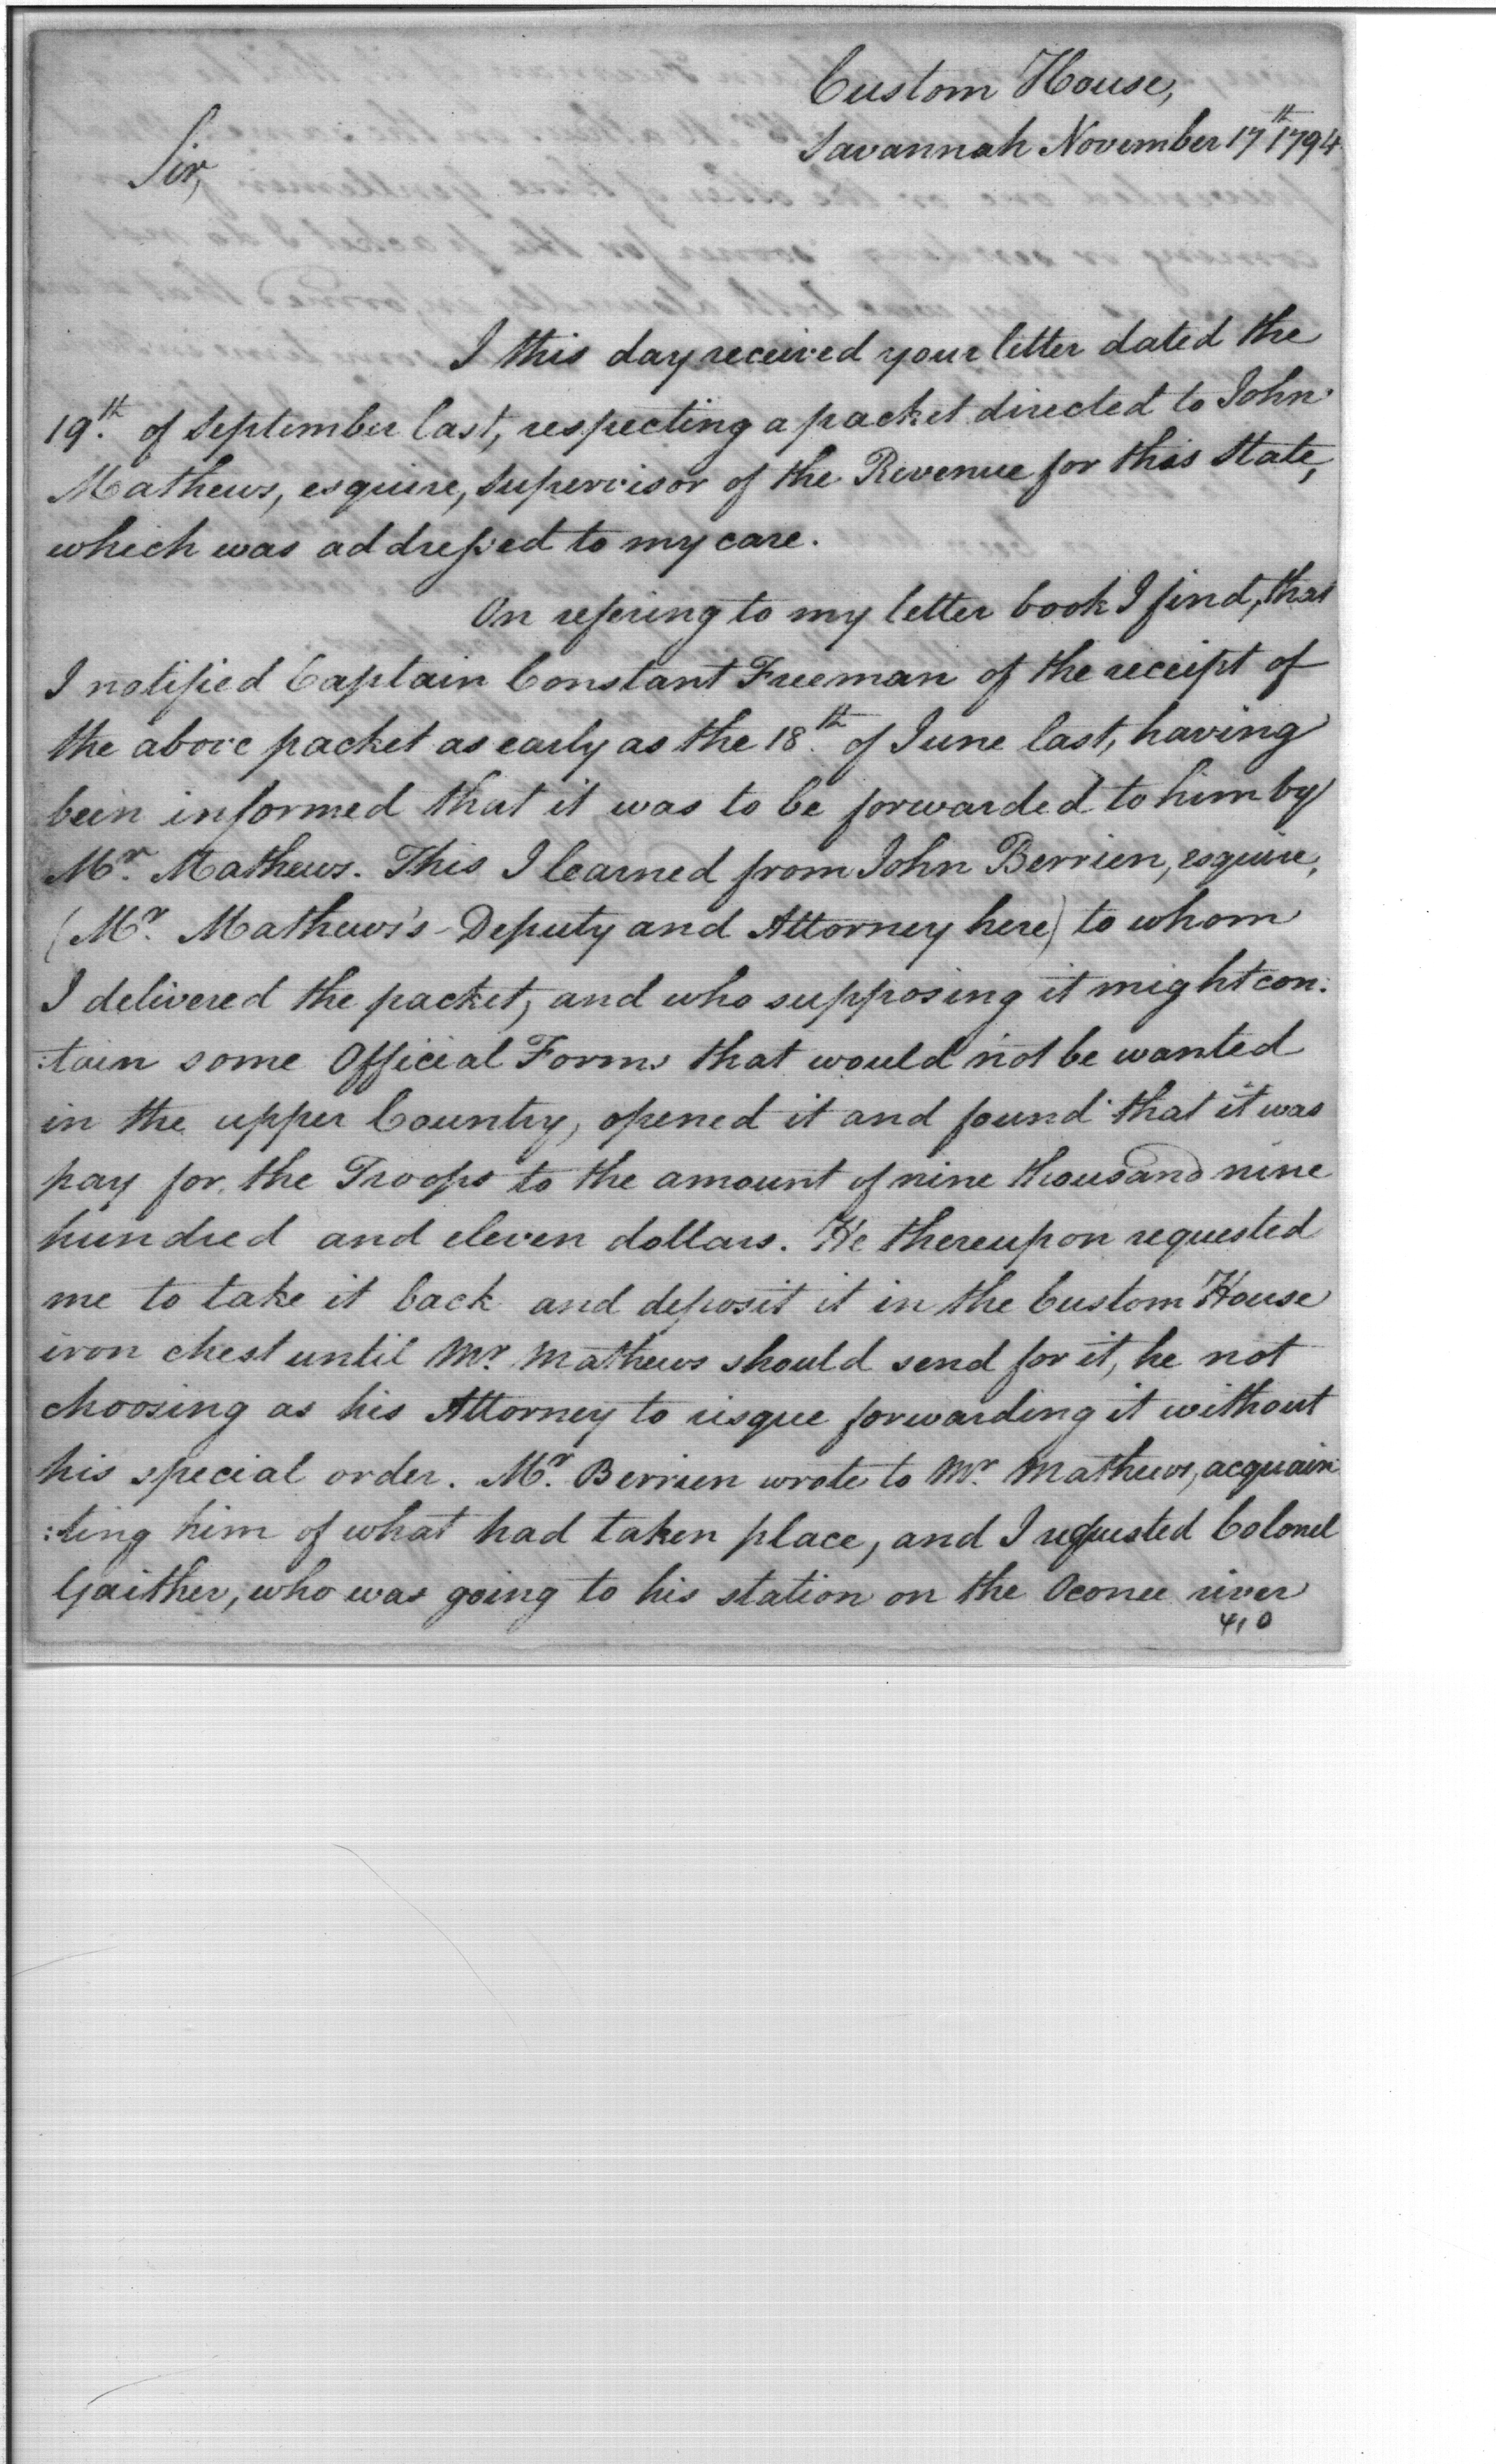 Custom House,
Savannah November 17th 1794
Sir,
I this day received your letter dated the
19th. of September last, respecting a packet directed to John
Mathews, esquire, Supervisor of the Revenue for this State,
which was addreſsed to my care.
On refering to my letter book I find, that
I notified Captain Constant Freeman of the receipt of
the above packet as early as the 18th. of June last, having
been informed that it was to be forwarded to him by
Mr. Mathews. This I learned from John Berrien, esquire,
(Mr. Mathews's Deputy and Attorney here) to whom
I delivered the packet, and who supposing it might con:
:tain some Official Forms that would not be wanted
in the upper Country, opened it and found that it was
pay for the Troops to the amount of nine thousand nine
hundred and eleven dollars. He thereupon requested
me to take it back and deposit it in the Custom House
iron chest until Mr. Mathews should send for it, he not
choosing as his Attorney to risque forwarding it without
his special order. Mr. Berrien wrote to Mr. Mathews, acquain
:ting him of what had taken place, and I requested Colonel
Gaither, who was going to his station on the Oconee river
410